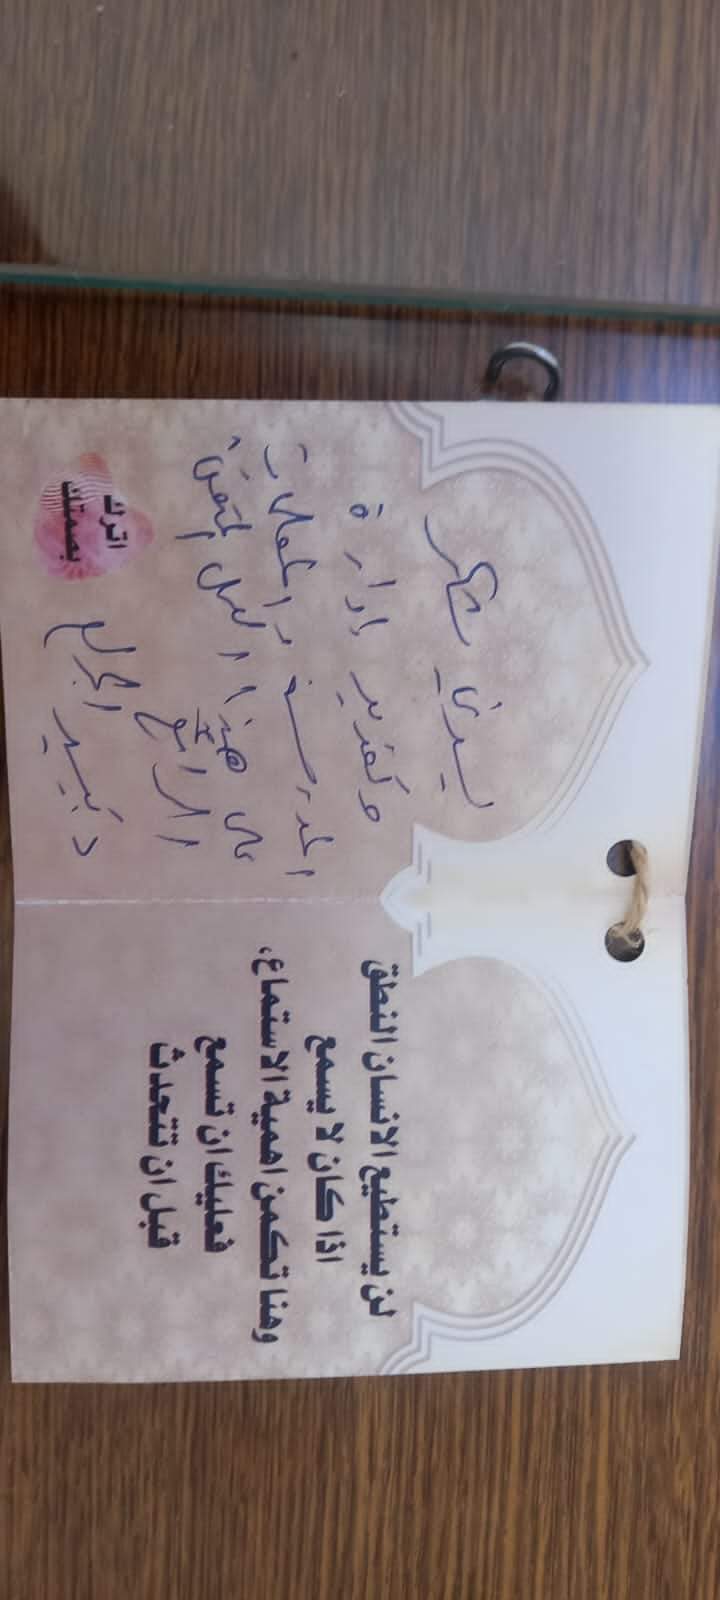 لن يستطيع الانسان النطق
اذا كان لا يسمع
وهنا تكمن اهمية الاستماع،
فعليك ان تسمع
قبل ان تتحدث
يسرني شكر
وتقدير ادارة
المدرسة والمعلمات
على هذا العمل المتقن
الرائع
اترك
بصمتك